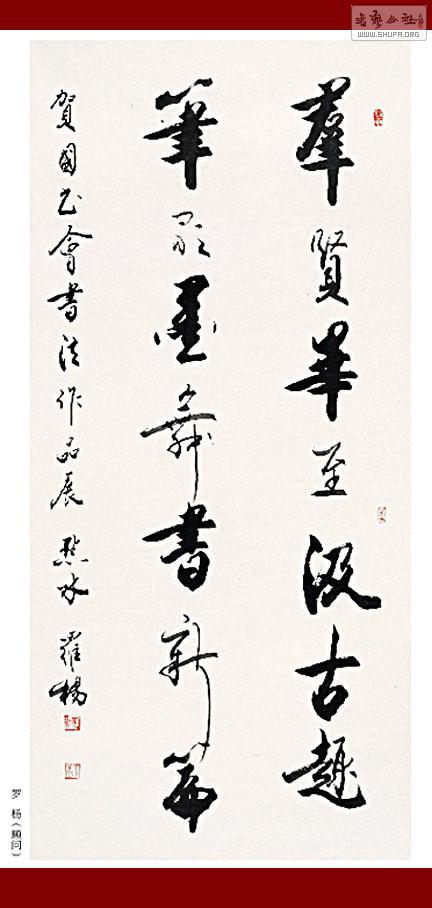 书艺公社
WWW.SHUFA.ORG
羣賢畢至汲古趣
筆歌墨舞書新篇
賀國书會書法作品展 羅楊
罗 杨（顾问）